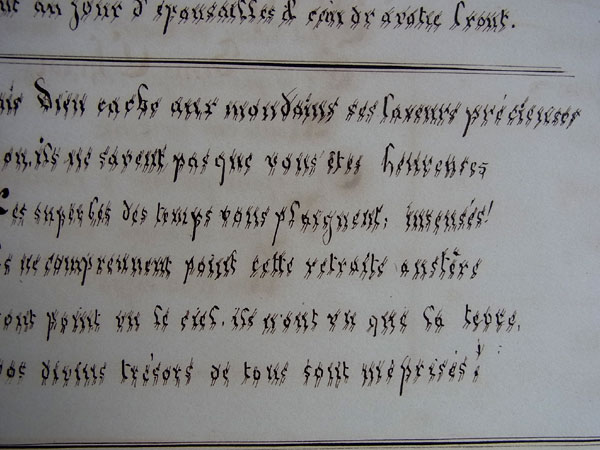 au jour d'épousailles &
Dieu cache aux mondains ses faveurs précieuses
ils ne savent pas que vous êtes heureuses
Les superbes des temps vous plaignent, insensés!
ne comprennent point cette retraite austère
point vu le ciel, ils n'ont vu que la terre,
vos divins trésors de tous sont méprisés!